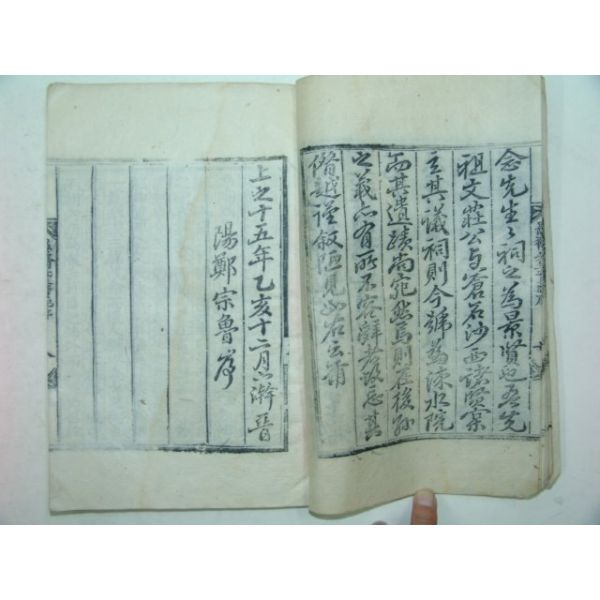 念先生之祠之為景賢也吾先
祖文莊公与蒼石沙西諸賢案
主其議祠則今號為涑水院
而其遺蹟尚宛然焉則在後孫
之義亦有所不容辭者故忘其
僭越謹叙陋見如右云爾
上之十五年乙亥十二月下澣晉
陽鄭宗魯序